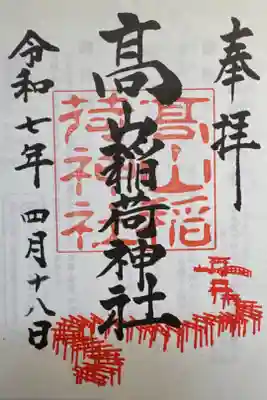 奉拝
髙山稲荷神社
髙山稲
荷神社
令和七年 四月十八日